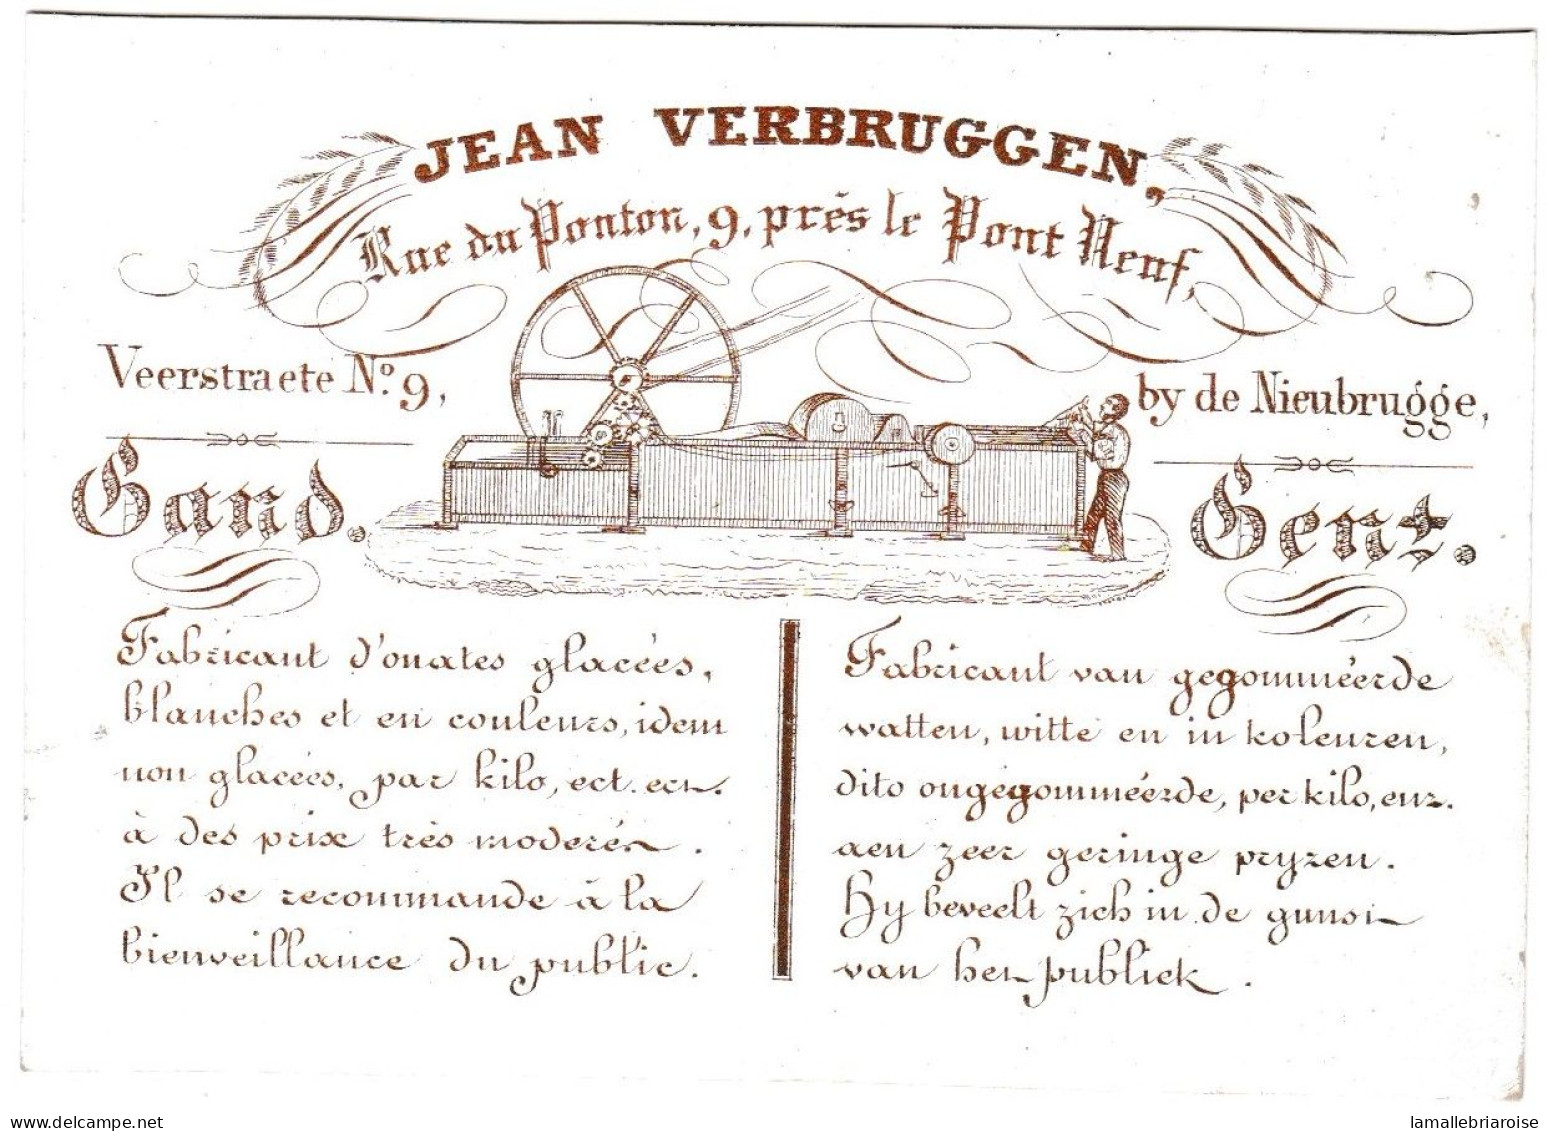 JEAN VERBRUGGEN,
Rue du Ponton, 9, près le Pont Neuf,
Veerstraete No. 9,
by de Nieubrugge,
Gand.
Gent.
Fabricant d'ouates glacées,
blanches et en couleurs, idem
non glacées, par kilo, ect. ect.
à des prix très moderés.
Il se recommande à la
bienveillance du public.
Fabricant van gegommeérde
watten, witte en in koleuren,
dito ongegommeérde, per kilo, enz.
aen zeer geringe pryzen.
Hy beveelt zich in de gunst
van het publiek.
delcampe.net
lamallebriaroise